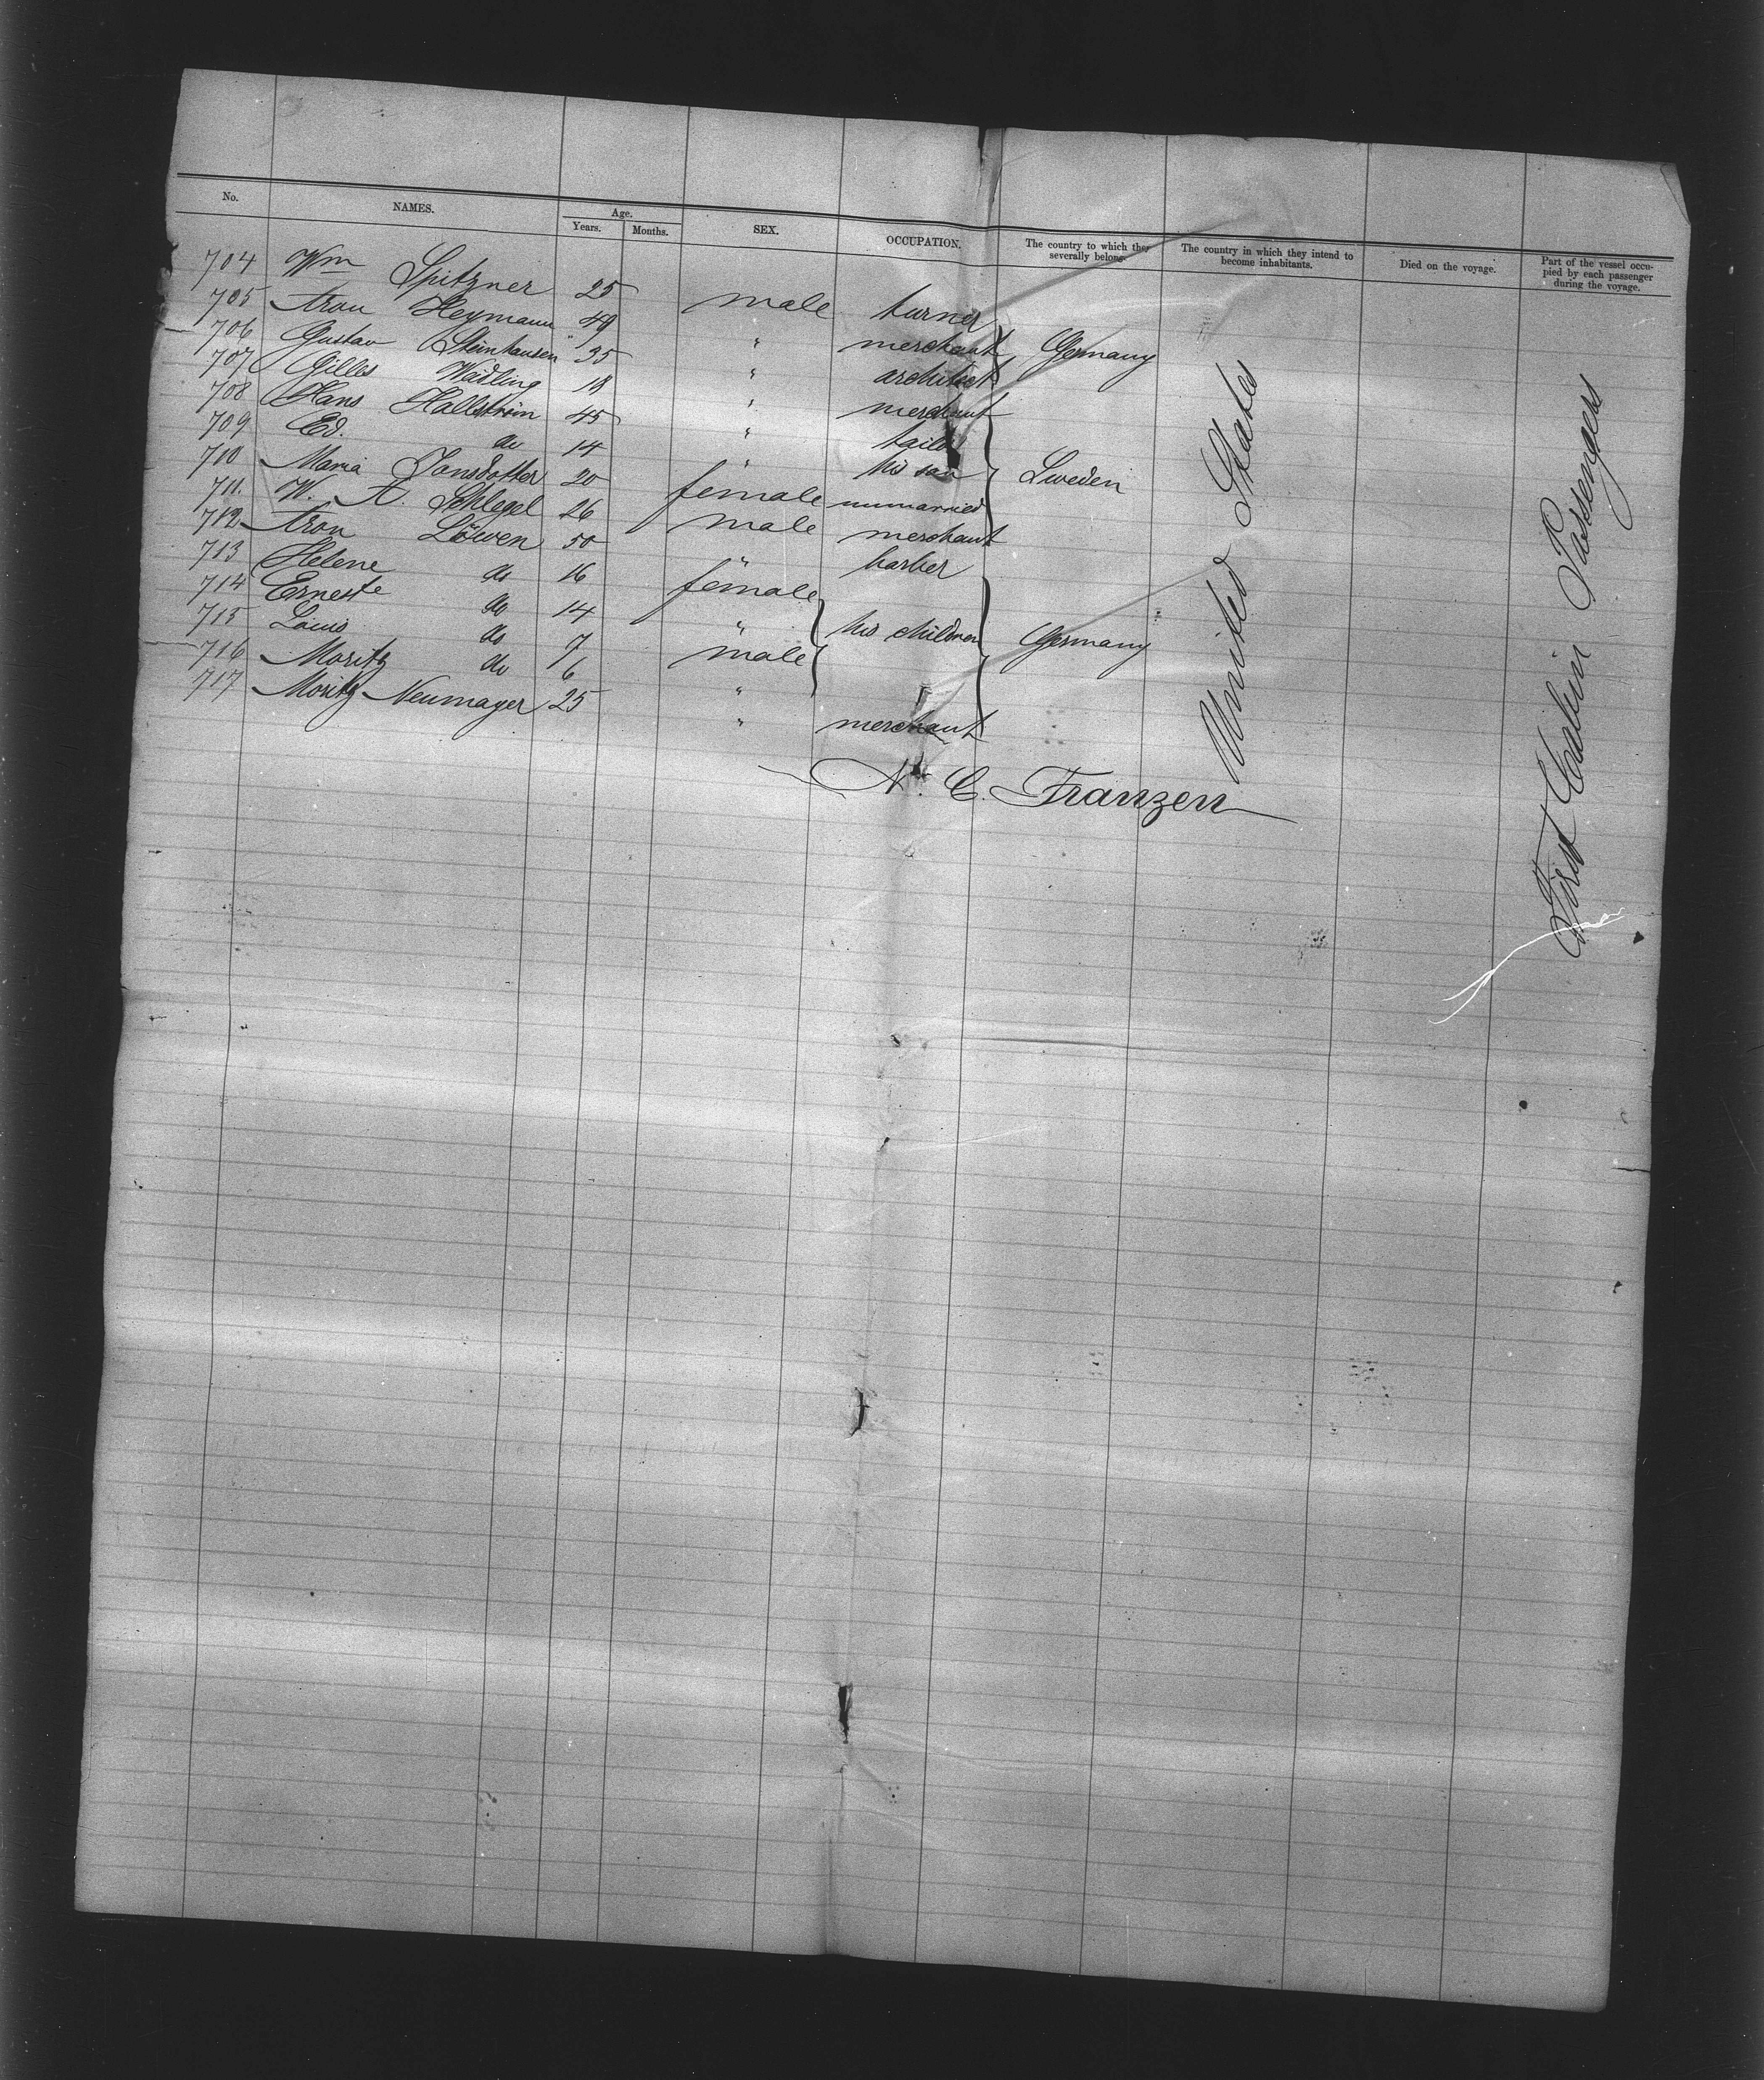 No. NAMES. Age. Years. Months. SEX. OCCUPATION. The country to which they severally belong. The country in which they intend to become inhabitants. Died on the voyage. Part of the vessel occupied by each passenger during the voyage.
704 Wm Spitzner 25 male turner
705 Aron Heymann 49 " merchant Germany
706 Gustav Steinhausen 35 " architect
707 Gilles Wadling 18 " merchant
708 Hans Hallström 45 " tailor
709 Ed. do 14 " his son Sweden
710 Maria Jansdotter 20 female unmarried
711. W. A. Schlegel 26 male merchant
712 Aron Löwen 50 " barber
713 Helene do 16 female
714 Erneste do 14 " his children Germany
715 Louis do 7 male
716 Moritz do 6 "
717 Moritz Neumayer 25 " merchant
N. C. Franzen
United States
First Cabin Passengers